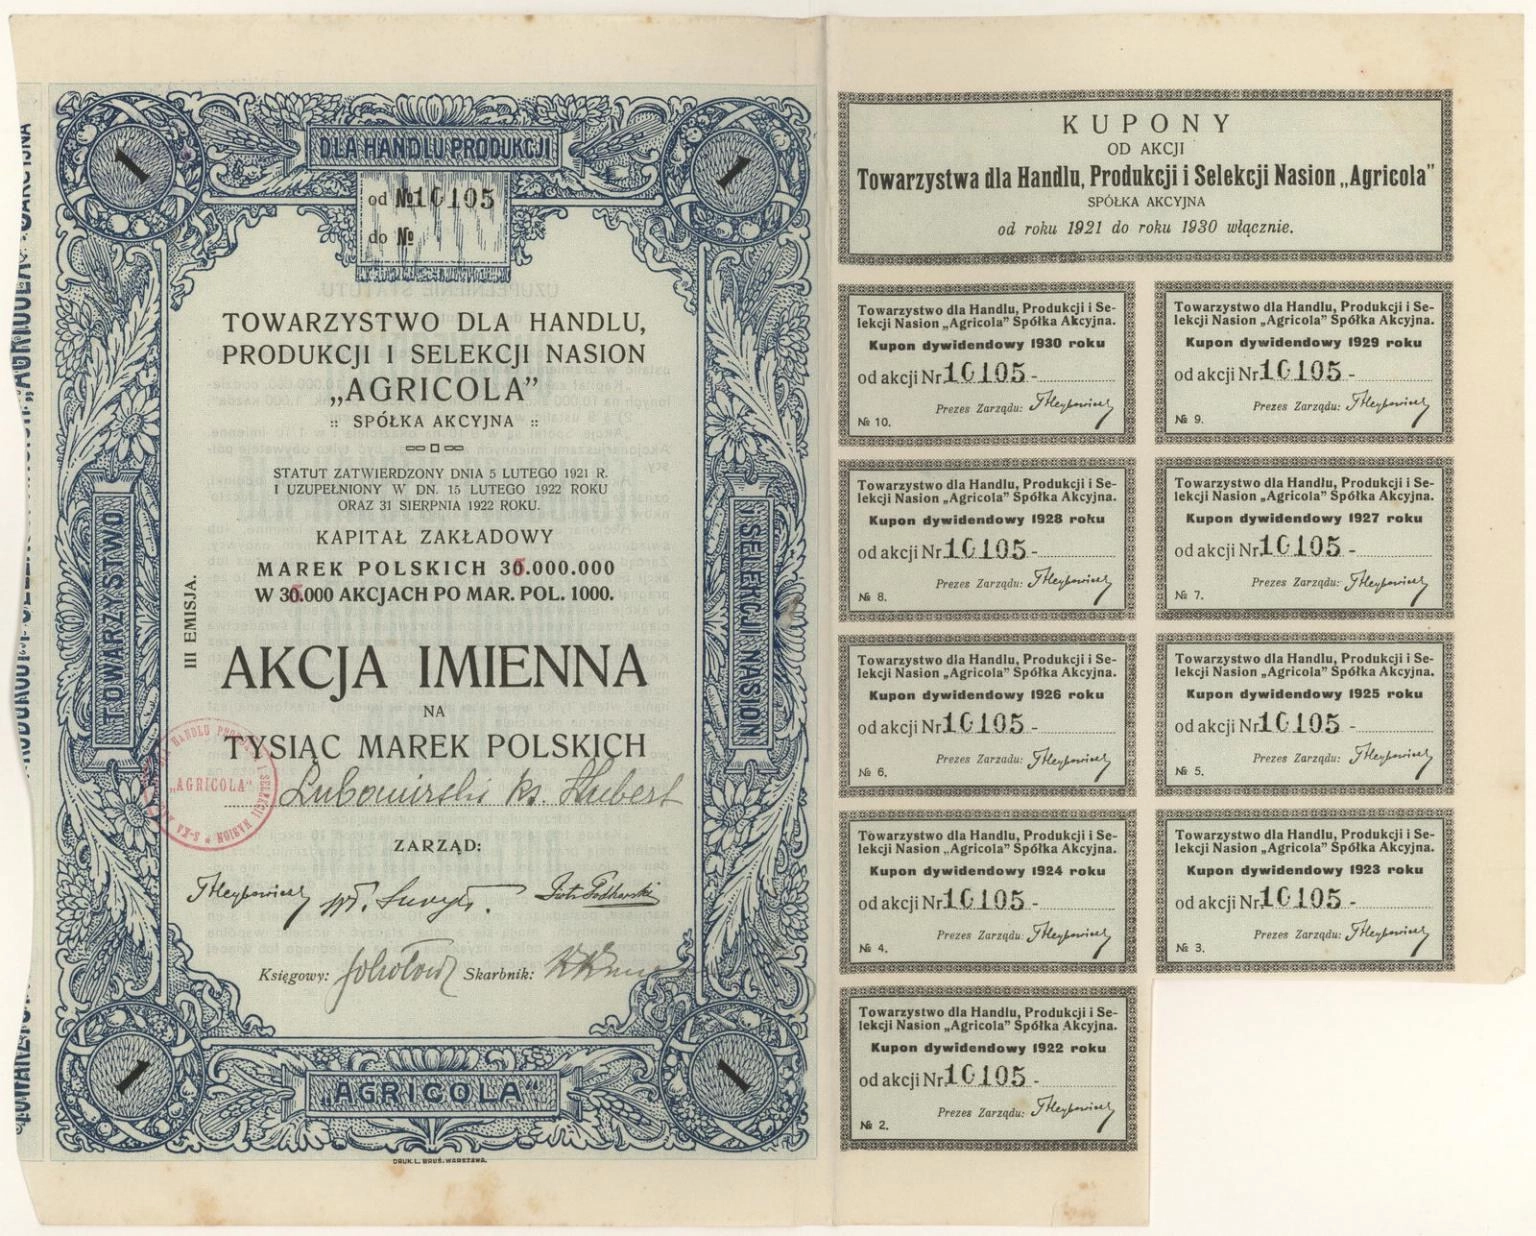 DLA HANDLU PRODUKCJI
1
1
od № 10105
do №
TOWARZYSTWO
I SELEKCJI NASION
TOWARZYSTWO DLA HANDLU,
PRODUKCJI I SELEKCJI NASION
„AGRICOLA”
:: SPÓŁKA AKCYJNA ::
STATUT ZATWIERDZONY DNIA 5 LUTEGO 1921 R.
I UZUPEŁNIONY W DN. 15 LUTEGO 1922 ROKU
ORAZ 31 SIERPNIA 1922 ROKU.
KAPITAŁ ZAKŁADOWY
MAREK POLSKICH 30.000.000
W 30.000 AKCJACH PO MAR. POL. 1000.
III EMISJA.
AKCJA IMIENNA
NA
TYSIĄC MAREK POLSKICH
Lubomirski ks. Hubert
„AGRICOLA”
ZARZĄD:
Księgowy: Skarbnik:
1
„AGRICOLA”
1
DRUK. L. BRUŚ. WARSZAWA.
KUPONY
OD AKCJI
Towarzystwa dla Handlu, Produkcji i Selekcji Nasion „Agricola”
SPÓŁKA AKCYJNA
od roku 1921 do roku 1930 włącznie.
Towarzystwo dla Handlu, Produkcji i Se-
lekcji Nasion „Agricola” Spółka Akcyjna.
Kupon dywidendowy 1930 roku
od akcji Nr 10105-
Prezes Zarządu:
№ 10.
Towarzystwo dla Handlu, Produkcji i Se-
lekcji Nasion „Agricola” Spółka Akcyjna.
Kupon dywidendowy 1929 roku
od akcji Nr 10105-
Prezes Zarządu:
№ 9.
Towarzystwo dla Handlu, Produkcji i Se-
lekcji Nasion „Agricola” Spółka Akcyjna.
Kupon dywidendowy 1928 roku
od akcji Nr 10105-
Prezes Zarządu:
№ 8.
Towarzystwo dla Handlu, Produkcji i Se-
lekcji Nasion „Agricola” Spółka Akcyjna.
Kupon dywidendowy 1927 roku
od akcji Nr 10105-
Prezes Zarządu:
№ 7.
Towarzystwo dla Handlu, Produkcji i Se-
lekcji Nasion „Agricola” Spółka Akcyjna.
Kupon dywidendowy 1926 roku
od akcji Nr 10105-
Prezes Zarzadu:
№ 6.
Towarzystwo dla Handlu, Produkcji i Se-
lekcji Nasion „Agricola” Spółka Akcyjna.
Kupon dywidendowy 1925 roku
od akcji Nr 10105-
Prezes Zarządu:
№ 5.
Towarzystwo dla Handlu, Produkcji i Se-
lekcji Nasion „Agricola” Spółka Akcyjna.
Kupon dywidendowy 1924 roku
od akcji Nr 10105-
Prezes Zarządu:
№ 4.
Towarzystwo dla Handlu, Produkcji i Se-
lekcji Nasion „Agricola” Spółka Akcyjna.
Kupon dywidendowy 1923 roku
od akcji Nr. 10105-
Prezes Zarządu:
№ 3.
Towarzystwo dla Handlu, Produkcji i Se-
lekcji Nasion „Agricola” Spółka Akcyjna.
Kupon dywidendowy 1922 roku
od akcji Nr. 10105-
Prezes Zarządu:
№ 2.